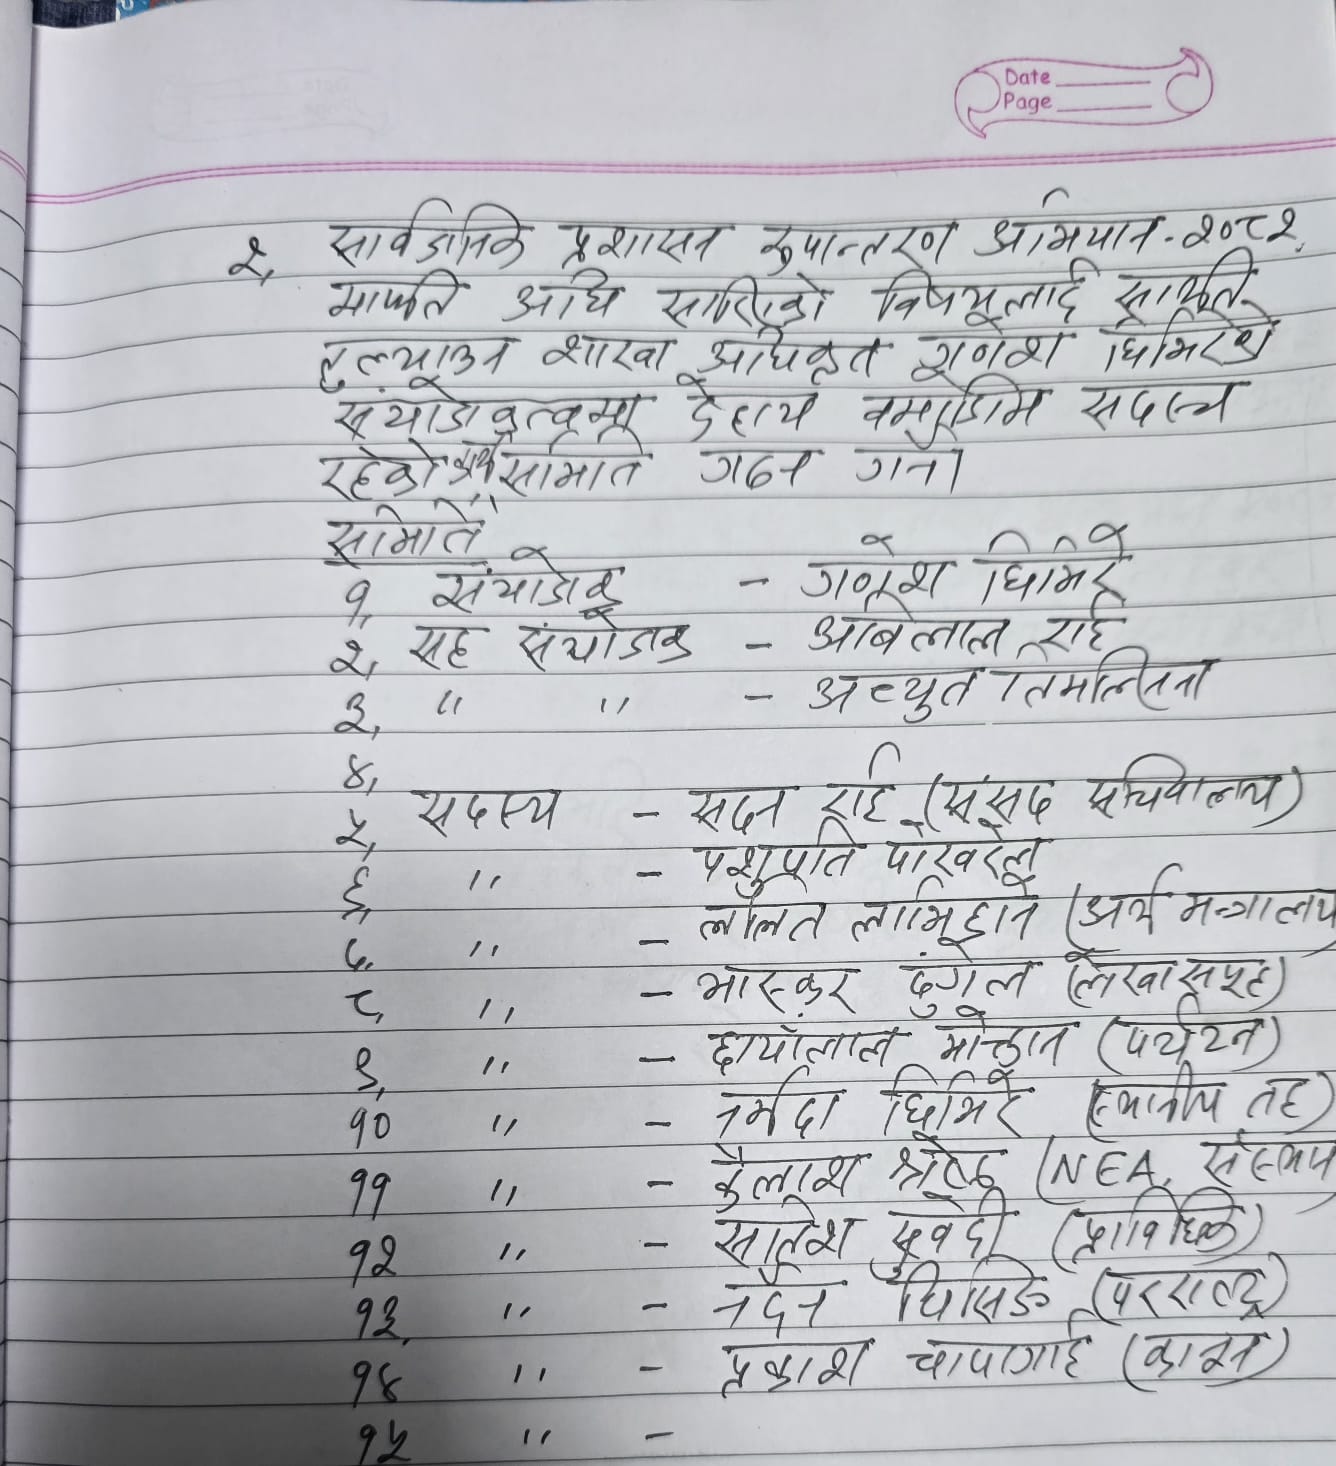 Date
Page
२, सार्वजनिक प्रशासन रुपान्तरण अभियान-२०८२,
मार्फत अघि सारिएको विषयलाई सार्थति
तुल्याउन शाखा अधिकृत गणेश घिमिरेको
संयोजकत्वमा देहाय बमोजिम सदस्य
रहेको कार्य समिति गठन गर्ने।
समिति
१, संयोजक - गणेश घिमिरे
२, सह संयोजक - ओबिलाल राई
३, " " - अच्युत तिमल्सिना
४,
५, सदस्य - सदन राई (संसद सचिवालय)
६, " - पशुपति पोखरेल
७, " - ललित लामिछाने (अर्थ मन्त्रालय
८, " - भास्कर दुंगेल (लेखा समूह)
९, " - छायाँलाल मोक्तान (पर्यटन)
१० " - नर्मदा घिमिरे (स्थानीय तह)
११ " - कैलाश श्रेष्ठ (NEA, संस्थान
१२ " - सुवेदी (प्राविधिक)
१३, " - घिसिङ (परराष्ट्र)
१४ " - प्रकाश चापागाई (कानून)
१५ " -